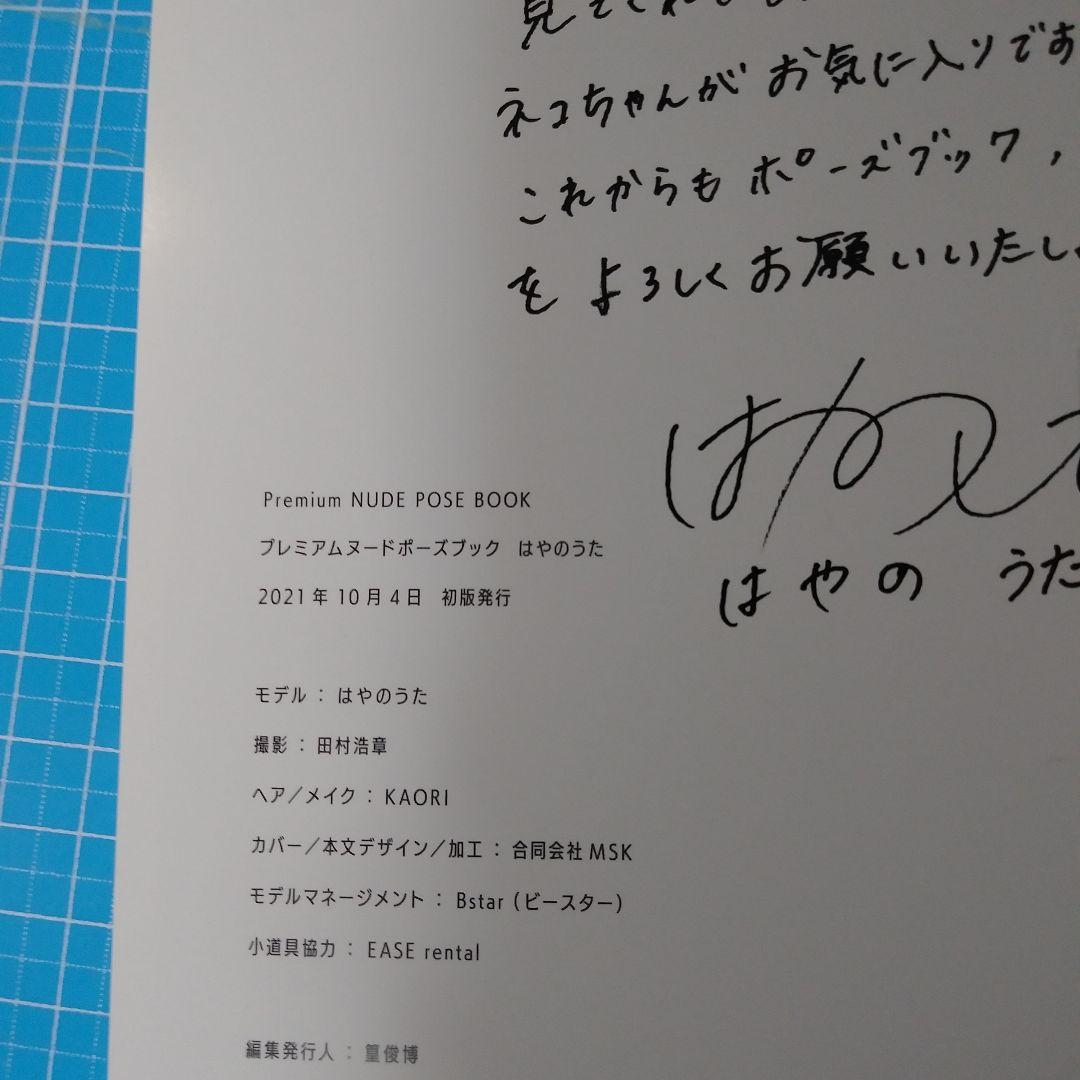 ネコちゃんがお気に入りです
これからもポーズブック,
をよろしくお願いいたし
はやのうた
はやの うた
Premium NUDE POSE BOOK
プレミアムヌードポーズブック はやのうた
2021年10月4日 初版発行
モデル：はやのうた
撮影：田村浩章
ヘア／メイク：KAORI
カバー／本文デザイン／加工：合同会社MSK
モデルマネージメント：Bstar（ビースター）
小道具協力：EASE rental
編集発行人：篁俊博